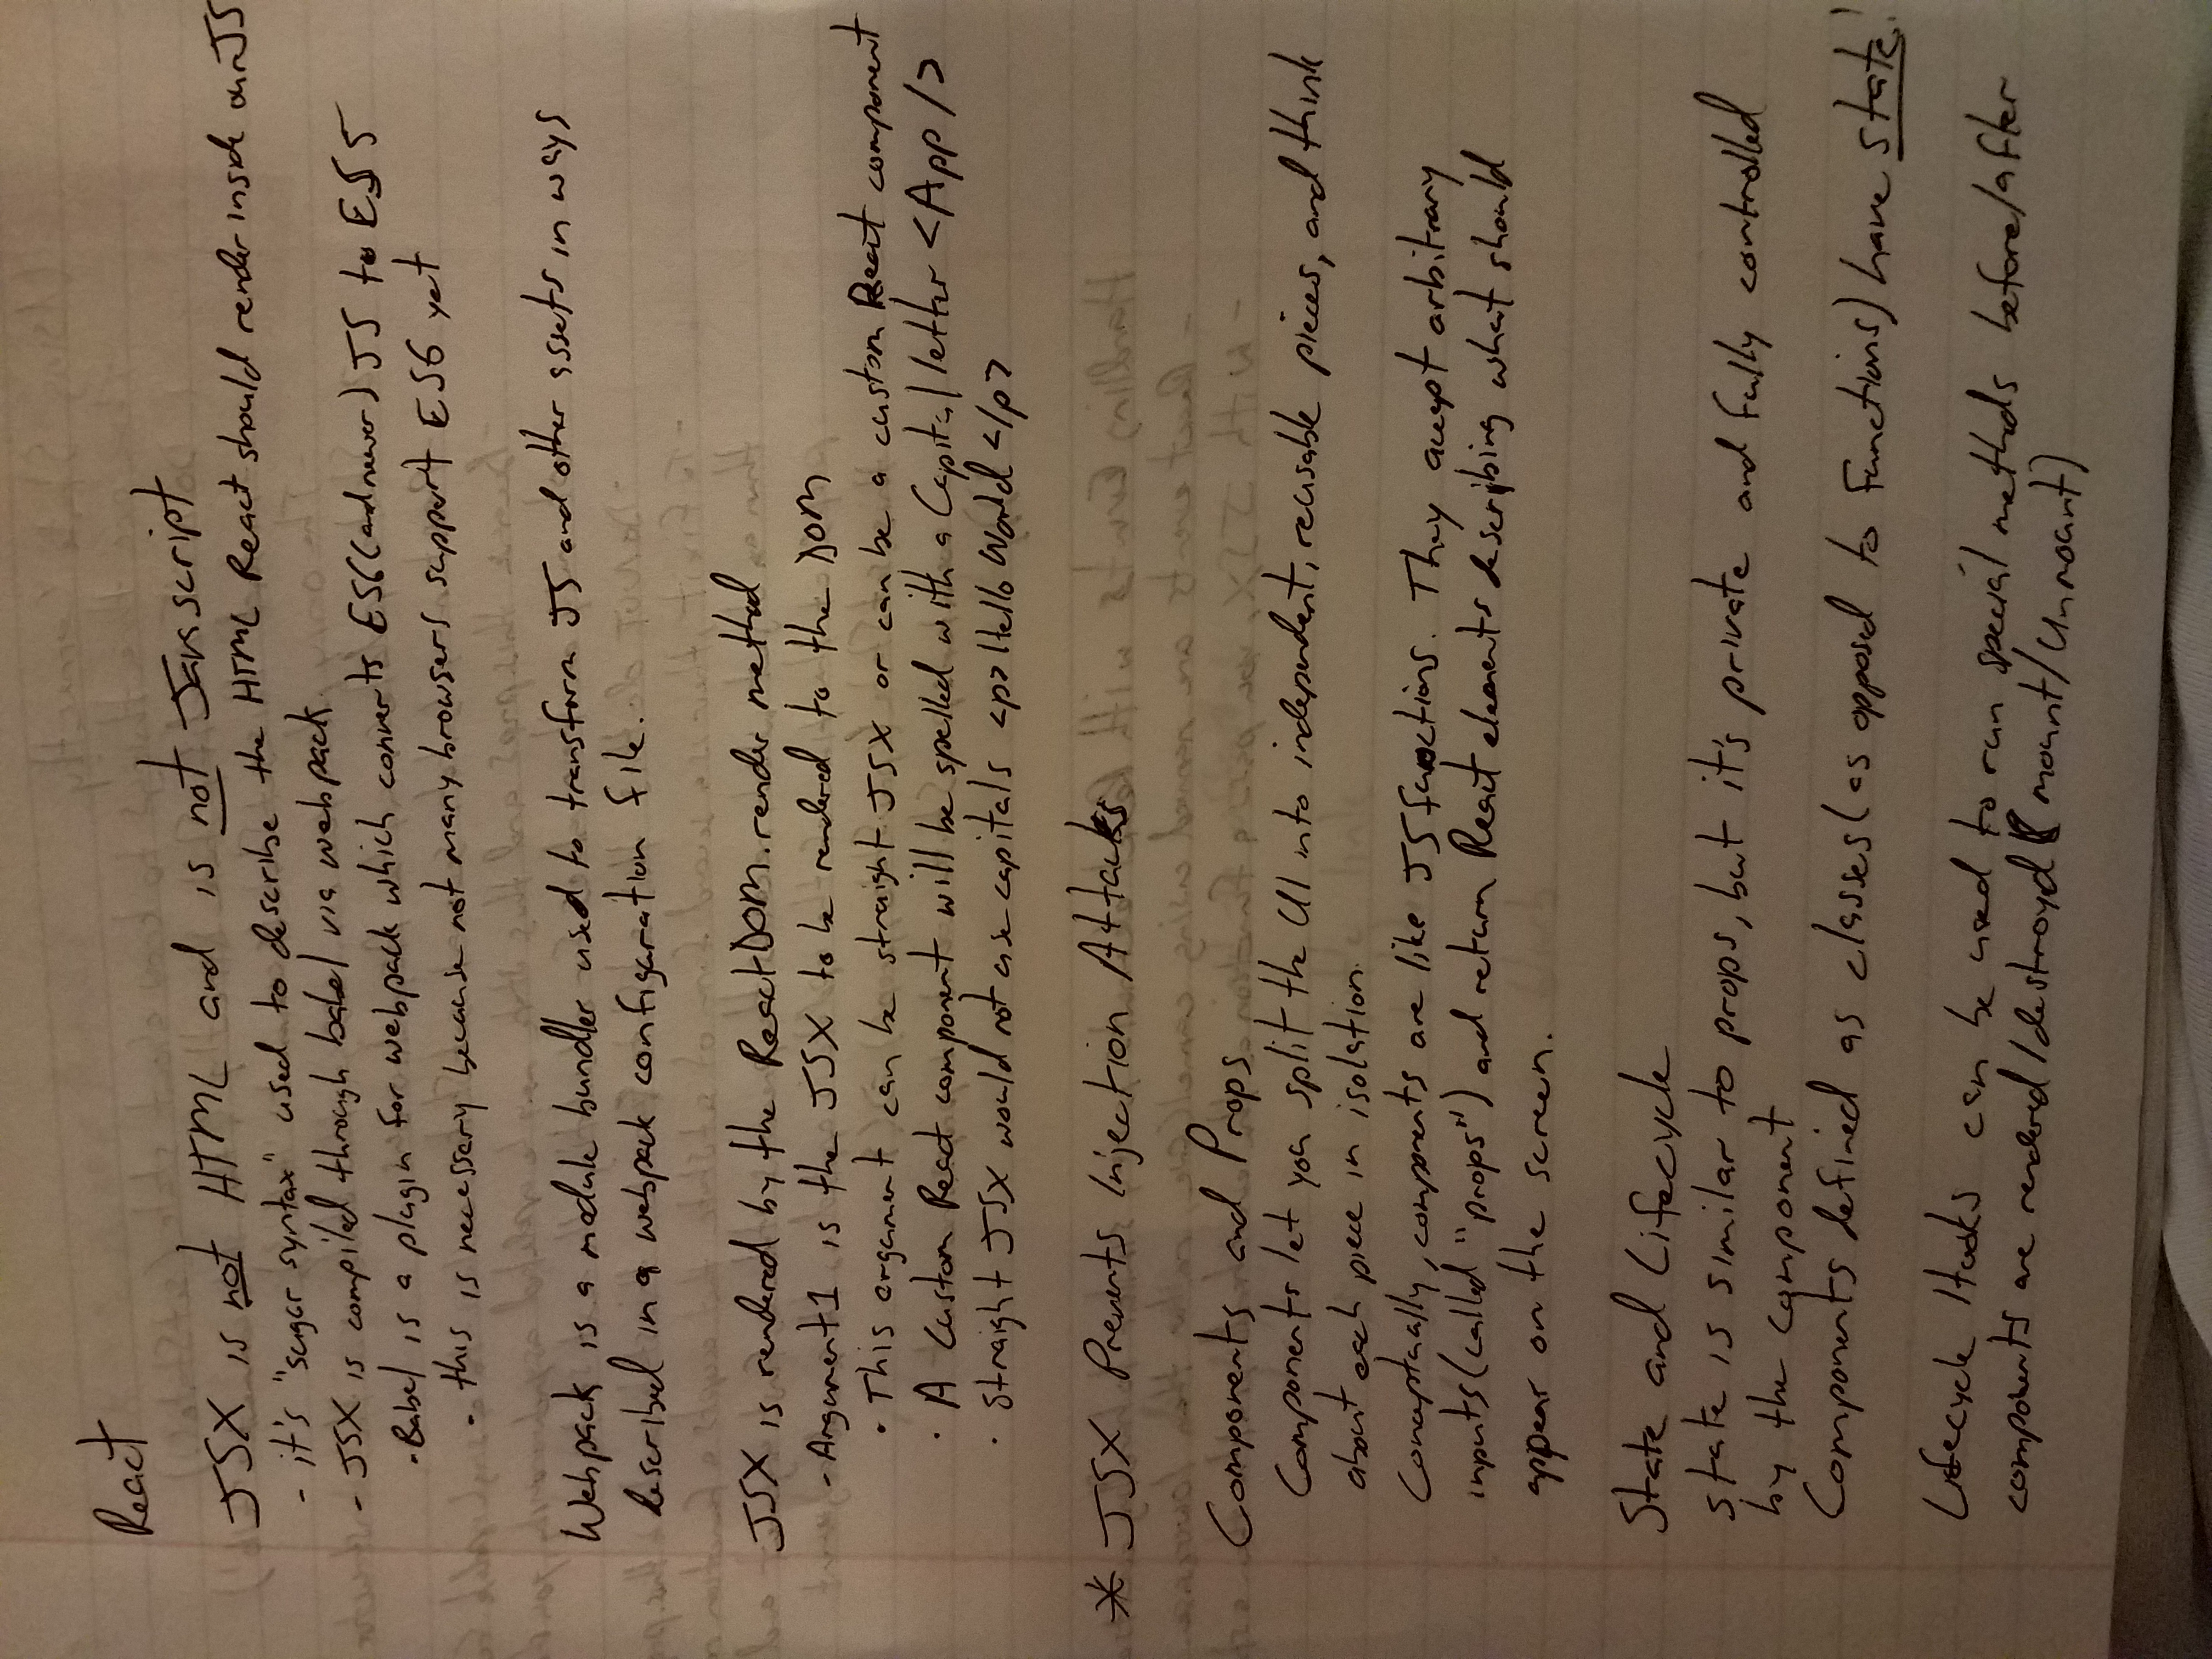 React
JSX is not HTML and is not Javascript
- it's "sugar syntax" used to describe the HTML React should render inside our JS
- JSX is compiled through babel via webpack
- Babel is a plugin for webpack which converts ES6 (and newer) JS to ES5
- this is necessary because not many browsers support ES6 yet
Webpack is a module bundler used to transform JS and other assets in ways
described in a webpack configuration file.
JSX is rendered by the ReactDOM.render method
- Argument1 is the JSX to be rendered to the DOM
• This argument can be straight JSX or can be a custom React component
• A Custom React component will be spelled with a Capital letter <App />
• Straight JSX would not use capitals <p>Hello World </p>
* JSX Prevents Injection Attacks
Components and Props
Components let you split the UI into independent, reusable pieces, and think
about each piece in isolation.
Conceptually, components are like JS functions. They accept arbitrary
inputs (called "props") and return React elements describing what should
appear on the screen.
State and Lifecycle
state is similar to props, but it's private and fully controlled
by the component
Components defined as classes (as opposed to functions) have state!
Lifecycle Hooks can be used to run special methods before/after
components are rendered/destroyd (mount/Unmount)